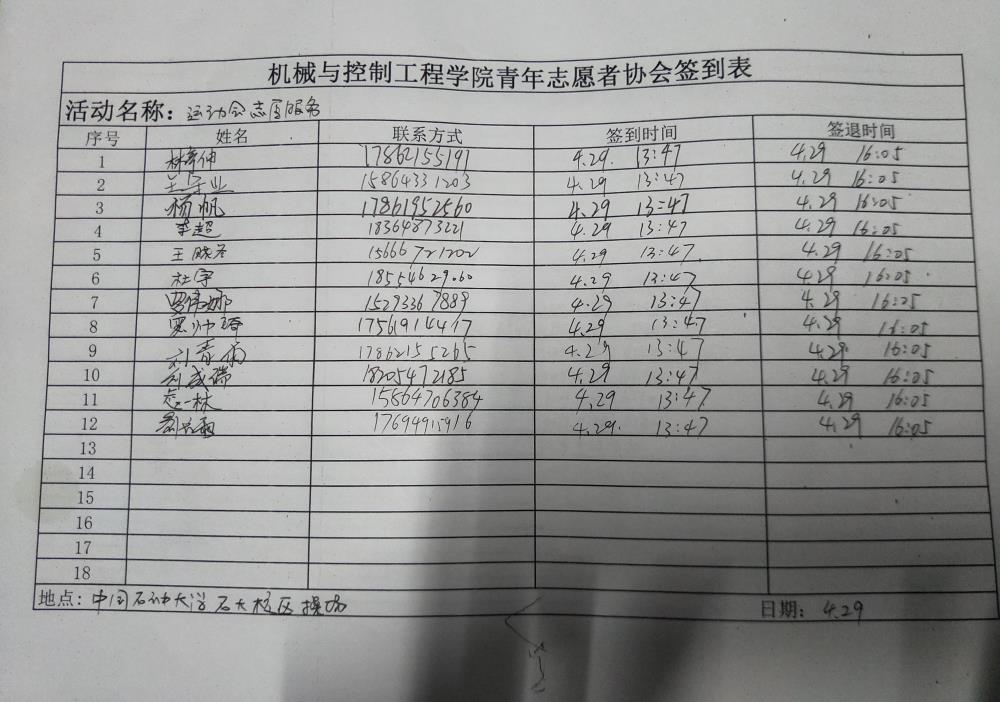 机械与控制工程学院青年志愿者协会签到表
活动名称：运动会志愿服务
序号 姓名 联系方式 签到时间 签退时间
1 17862155191 4.29. 13:47 4.29 16:05
2 15864331203 4.29 13:47 4.29 16:05
3 杨帆 17861952560 4.29 13:47 4.29 16:05
4 李超 18364873221 4.29 13:47 4.29 16:05
5 王晓冬 15666721202 4.29 13:47 4.29 16:05
6 杜宇 18554629060 4.29 13:47 4.29 16:05
7 15293367889 4.29 13:47 4.29 16:05
8 17561914417 4.29 13:47 4.29 16:05
9 刘青雨 17862155265 4.29 13:47 4.29 16:05
10 刘成瑞 18205472185 4.29 13:47 4.29 16:05
11 15864706384 4.29 13:47 4.29 16:05
12 17694915916 4.29. 13:47 4.29 16:05
13
14
15
16
17
18
地点：中国石油大学石大校区操场 日期：4.29